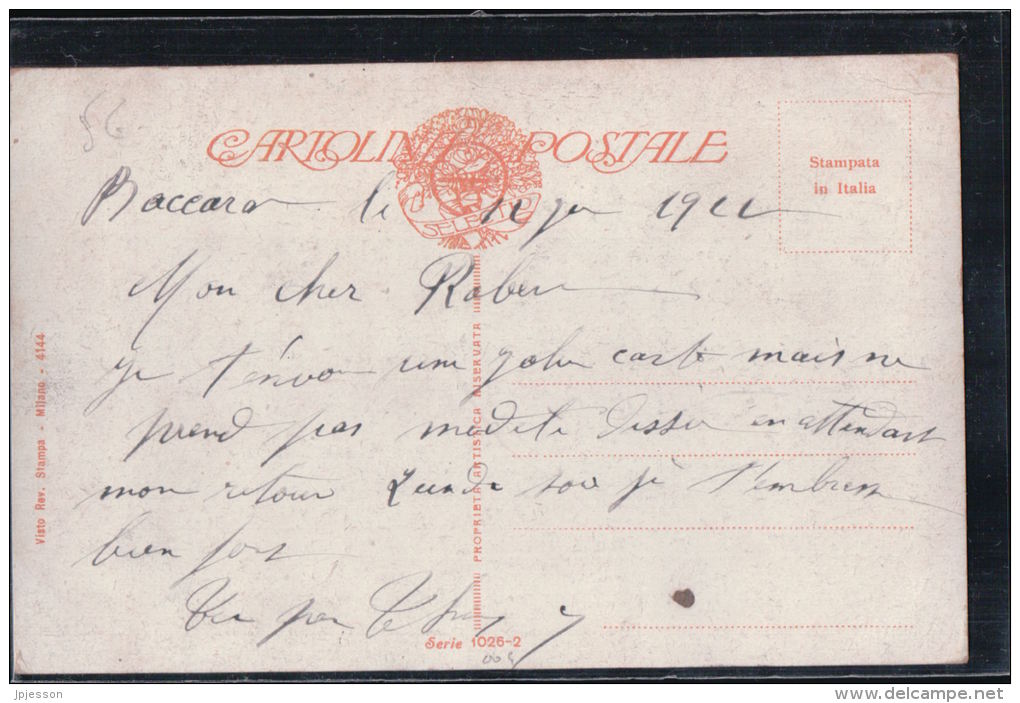 56
CARTOLINA POSTALE
SELECTA
Stampata
in Italia
Baccarat le 12 1922
Mon cher Robert
je t'envoi une jolie carte mais ne
prend pas modele dessu en attendant
mon retour Lundi soir je t'embrasse
bien fort
Ton
PROPRIETA ARTISTICA RISERVATA
Visto Rev. Stampa - Milano - 4144
Serie 1026-2
jpjesson
www.delcampe.net